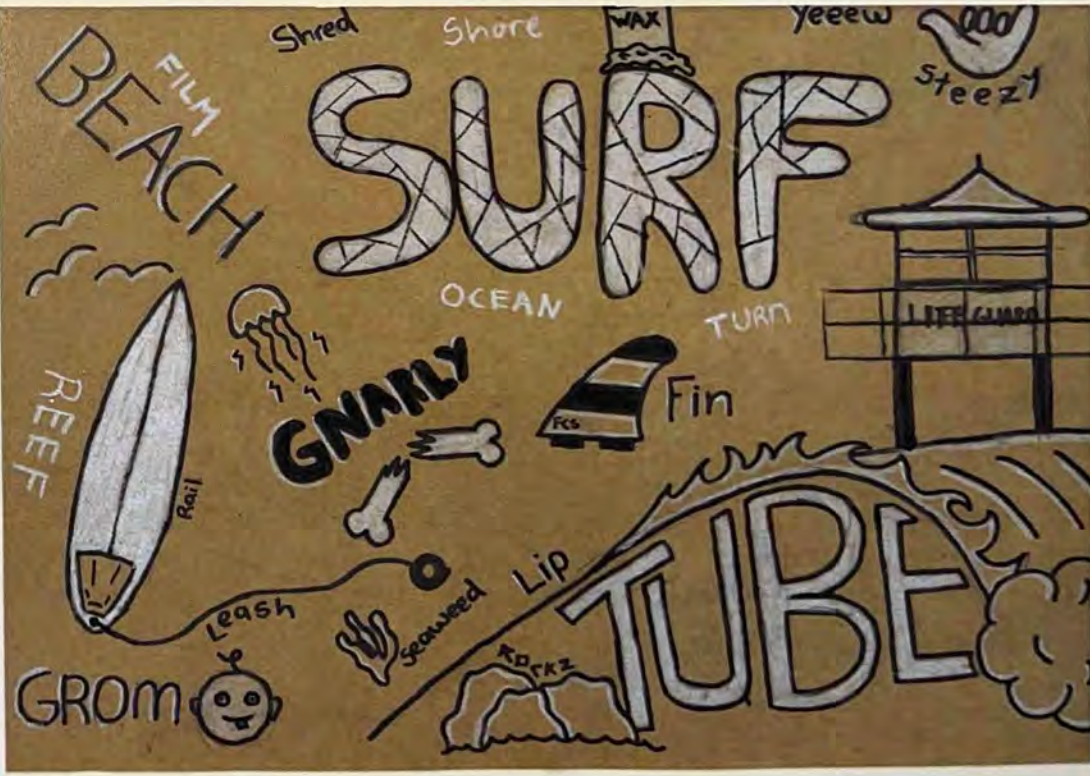 Shred
Shore
WAX
Yeeew
Steezy
BEACH
FILM
SURF
OCEAN
TURN
LIFE GUARD
REEF
GNARLY
Fcs
Fin
Rail
Leash
Seaweed
Lip
TUBE
ROCKZ
GROM